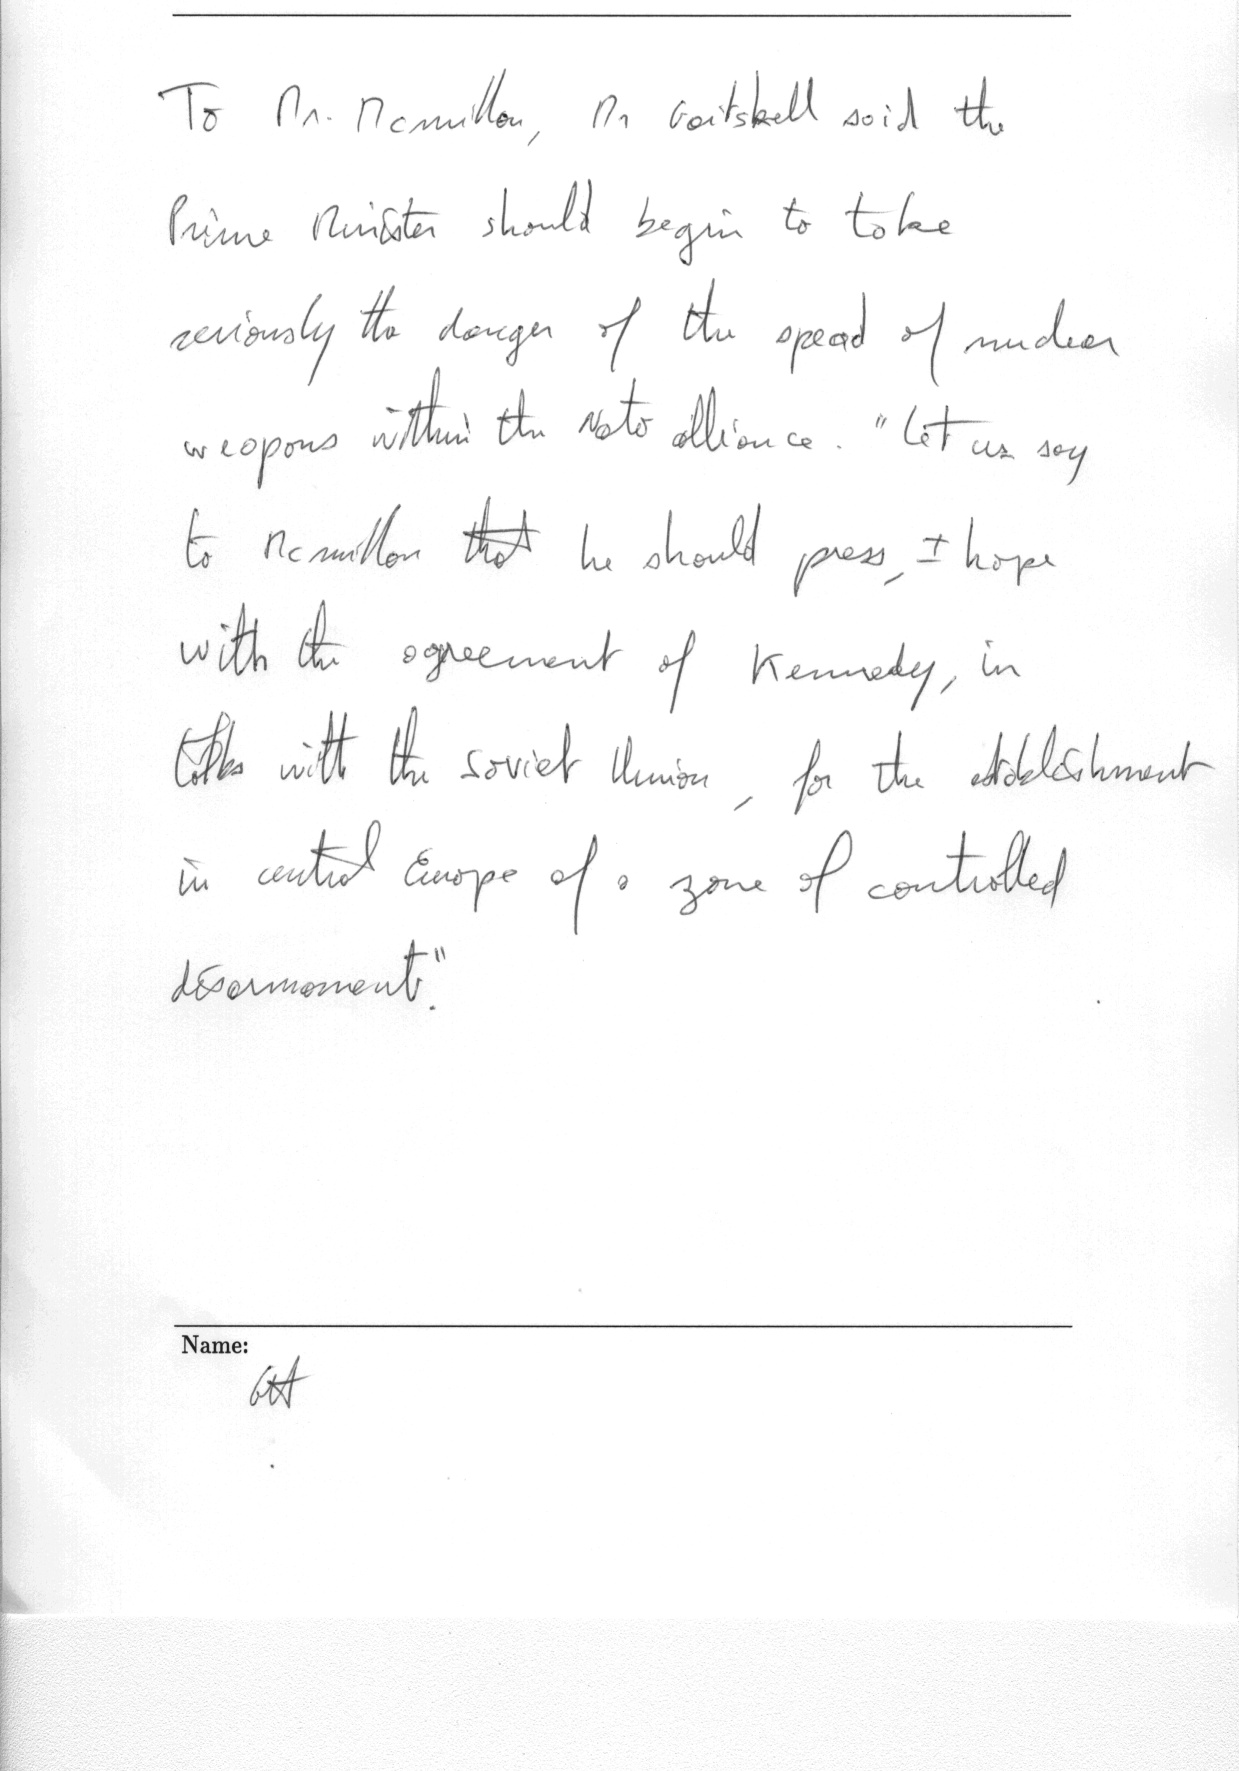 To Mr. Mcmillan, Mr Gaitskell said the
Prime Minister should begin to take
seriously the danger of the spead of nuclear
weapons within the Nato alliance. "Let us say
to Mcmillan that he should press, I hope
with the agreement of Kennedy, in
talks with the Soviet Union, for the establishment
in central Europe of a zone of controlled
disarmament".
Name: